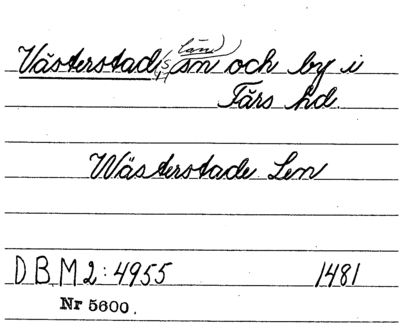 Västerstads län sn och by i
Färs hd.
Wästerstade Len
DBM2:4955 1481
Nr 5600.